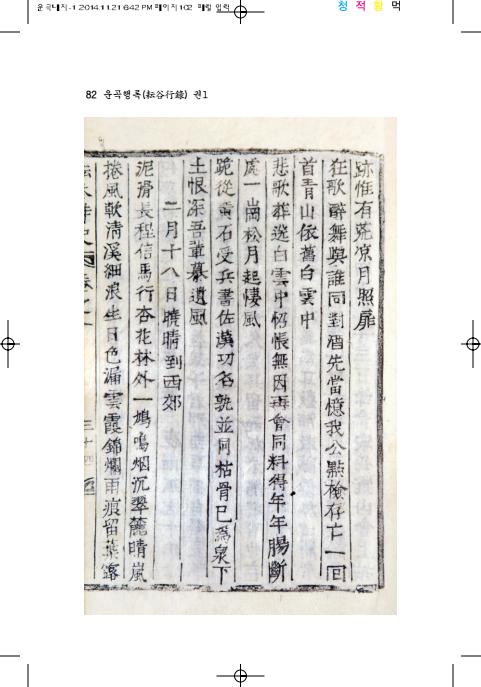 운곡대지-1 2014.11.21 6:42 PM 페이지102 매킨 입력
청 적 황 먹
82 운곡행록(耘谷行錄) 권1
跡惟有荒凉月照扉
狂歌醉舞與誰同對酒先當憶我公點檢存亡一回
首靑山依舊白雲中
悲歌葬送白雲中怊悵無因再會同料得年年腸斷
處一崗松月起悽風
跪從黃石受兵書佐漢功名孰並同枯骨已爲泉下
土恨深吾輩慕遺風
二月十八日曉晴到西郊
泥滑長程信馬行杏花林外一鳩鳴烟沉翠麓晴嵐
捲風軟淸溪細浪生日色漏雲霞錦爛雨痕留葉露
三十四